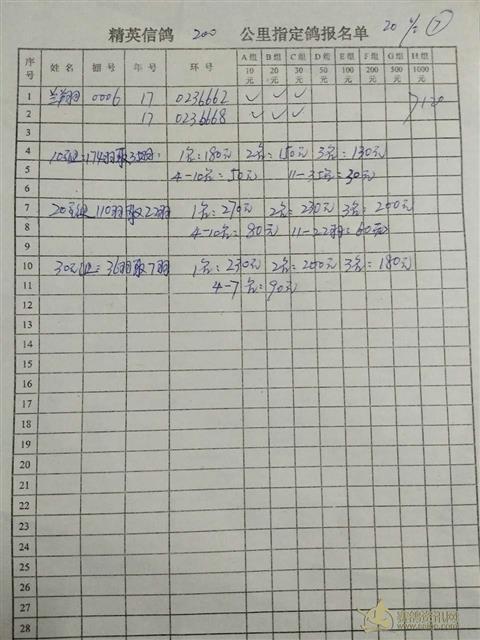 精英信鸽 200 公里指定鸽报名单 20 ⑦
序号 姓名 棚号 年号 环号 A组 10元 B组 20元 C组 30元 D组 50元 E组 100元 F组 200元 G组 500元 H组 1000元
1 兰翔羽 0006 17 0236662 ✓ ✓ ✓
2 17 0236668 ✓ ✓ ✓ 120
3
4 10元组=174羽取35羽: 1名=180元 2名=150元 3名=130元
5 4-10名=50元 11-35名=30元
6
7 20元组 110羽取22羽 1名=270元 2名=230元 3名=200元
8 4-10名=80元 11-22羽=60元
9
10 30元组=36羽取7羽 1名=230元 2名=200元 3名=180元
11 4-7名=90元
12
13
14
15
16
17
18
19
20
21
22
23
24
25
26
27
28